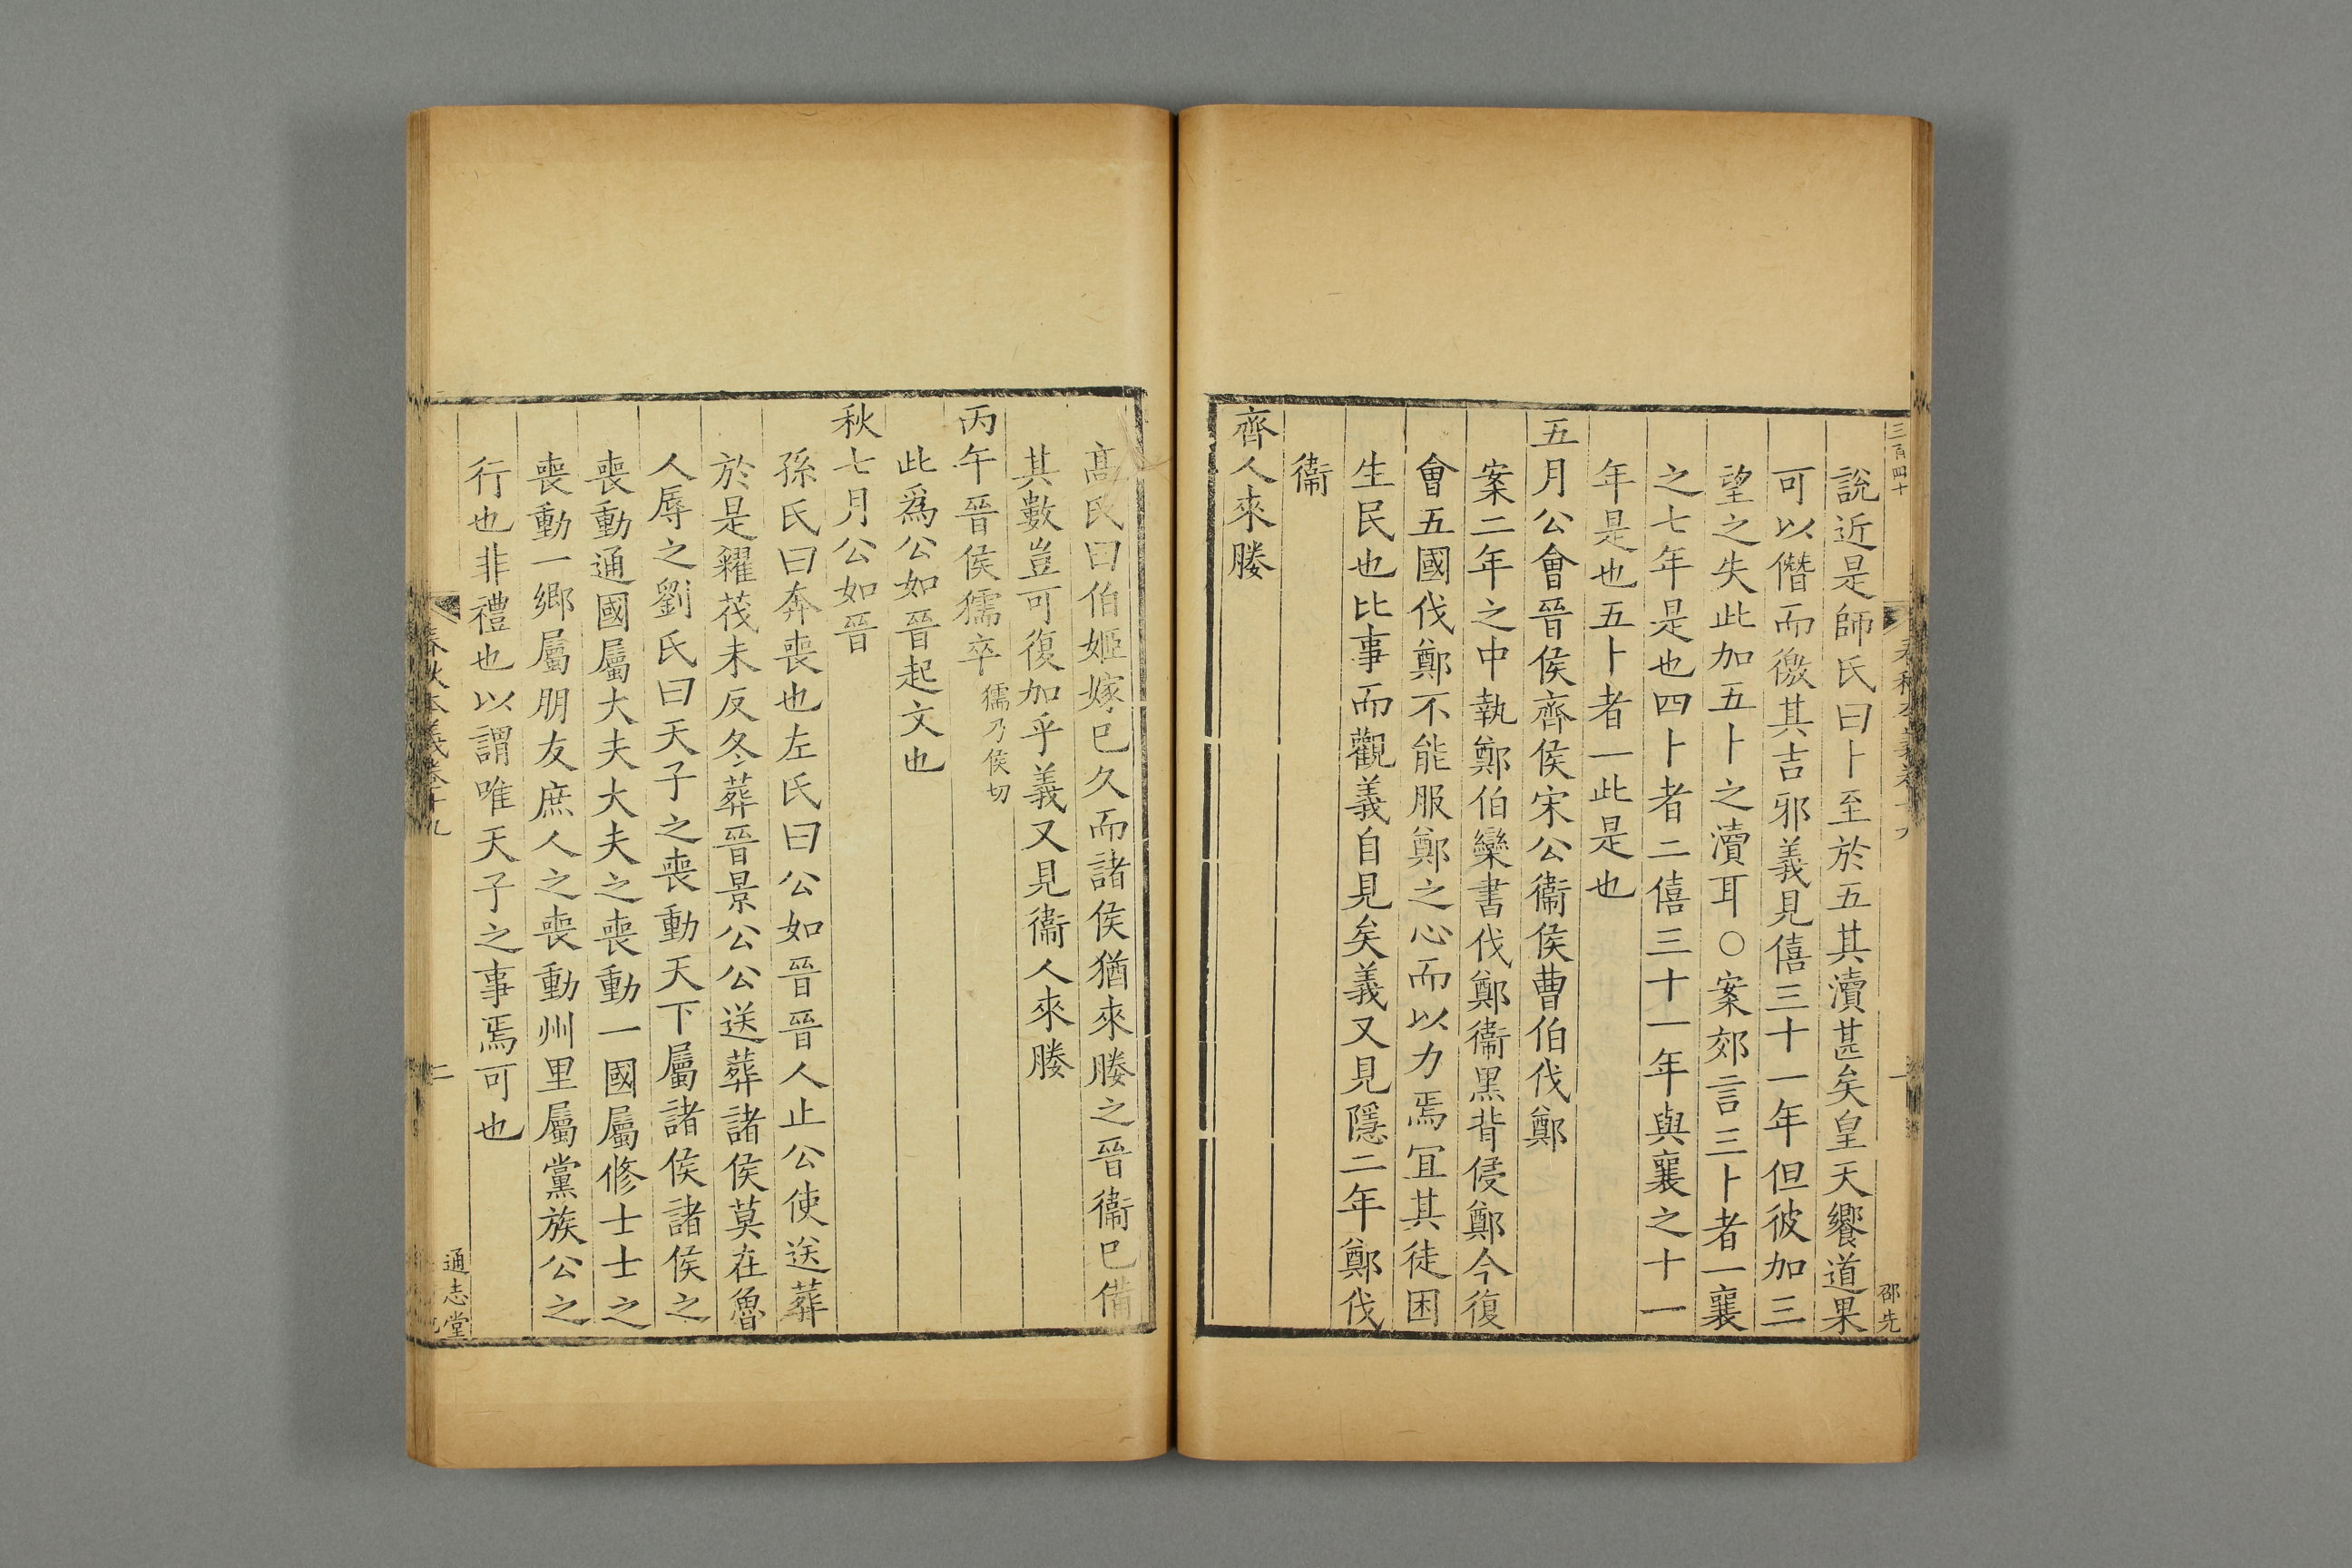 三百四十
邵先
說近是師氏曰卜至於五其瀆甚矣皇天饗道果
可以僭而徼其吉邪義見僖三十一年但彼加三
望之失此加五卜之瀆耳○案郊言三卜者一襄
之七年是也四卜者二僖三十一年與襄之十一
年是也五卜者一此是也
五月公會晉侯齊侯宋公衞侯曹伯伐鄭
案二年之中執鄭伯欒書伐鄭衞黑背侵鄭今復
會五國伐鄭不能服鄭之心而以力焉冝其徒困
生民也比事而觀義自見矣義又見隱二年鄭伐
衞
齊人來媵
髙氏曰伯姬嫁已久而諸侯猶來媵之晉衞已備
其數豈可復加乎義又見衞人來媵
丙午晉侯獳卒獳乃侯切
此爲公如晉起文也
秋七月公如晉
孫氏曰奔喪也左氏曰公如晉晉人止公使送葬
於是糴茷未反冬葬晉景公公送葬諸侯莫在魯
人辱之劉氏曰天子之喪動天下屬諸侯諸侯之
喪動通國屬大夫大夫之喪動一國屬修士士之
喪動一鄉屬朋友庶人之喪動州里屬黨族公之
行也非禮也以謂唯天子之事焉可也
春秋本義卷十九
二
通志堂